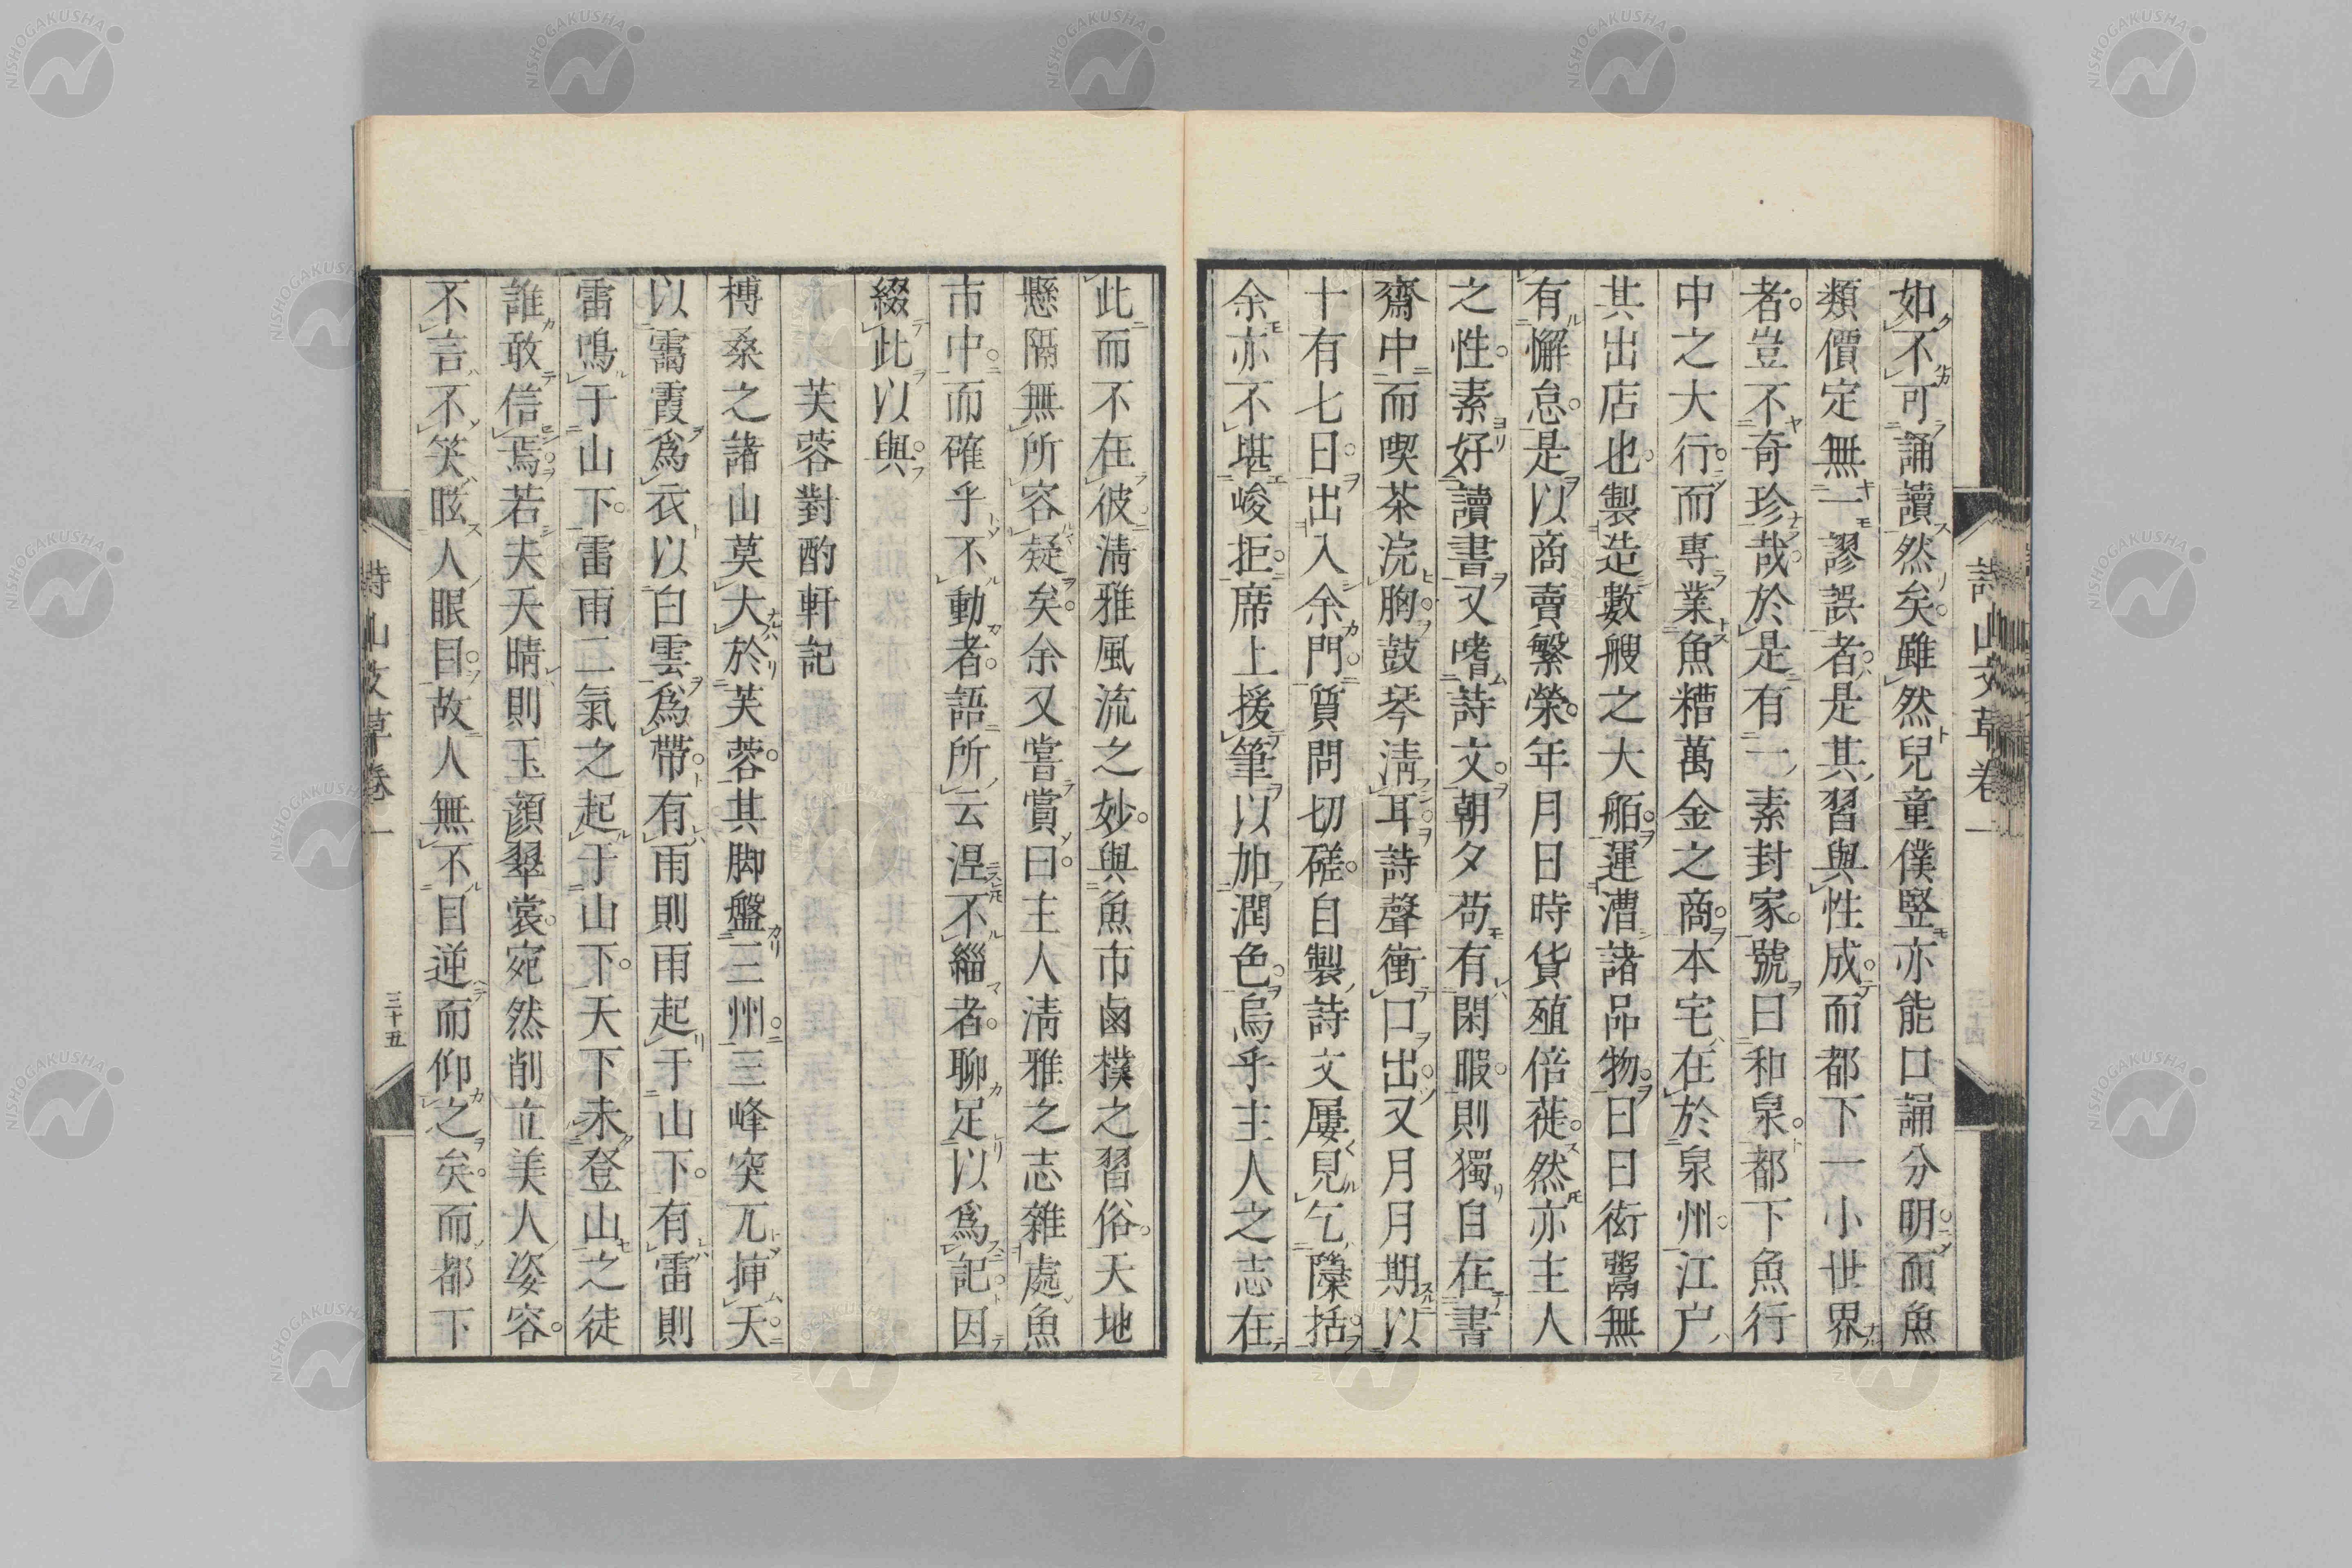 如不可誦讀然矣雖然兒童僕竪亦能口誦分明而魚
類價定無一謬誤者是其習與性成而都下一小世界
者豈不奇珍哉於是有一素封家號曰和泉都下魚行
中之大行而專業魚糟萬金之商本宅在於泉州江戸
其出店也製造數艘之大舶運漕諸品物日日衒鬻無
有懈怠是以商賣繁榮年月日時貨殖倍蓰然亦主人
之性素好讀書又嗜詩文朝夕苟有閑暇則獨自在書
齋中而喫茶浣胸鼓琴淸耳詩聲衝口出又月月期以
十有七日出入余門質問切磋自製詩文屢見乞隱括
余亦不堪峻拒席上援筆以加潤色烏乎主人之志在
詩山文草卷一
此而不在彼淸雅風流之妙與魚市鹵樸之習俗天地
懸隔無所容疑矣余又嘗賞曰主人淸雅之志雜處魚
市中而確乎不動者語所云涅不緇者聊足以爲記因
綴此以與
芙蓉對酌軒記
榑桑之諸山莫大於芙蓉其脚盤三州三峰突兀挿天
以靄霞爲衣以白雲爲帶有雨則雨起于山下有雷則
雷鳴于山下雷雨二氣之起于山下天下未登山之徒
誰敢信焉若夫天晴則玉顔翠裳宛然削立美人姿容
不言不笑眩人眼目故人無不目逆而仰之矣而都下
詩山文草卷一
三十五